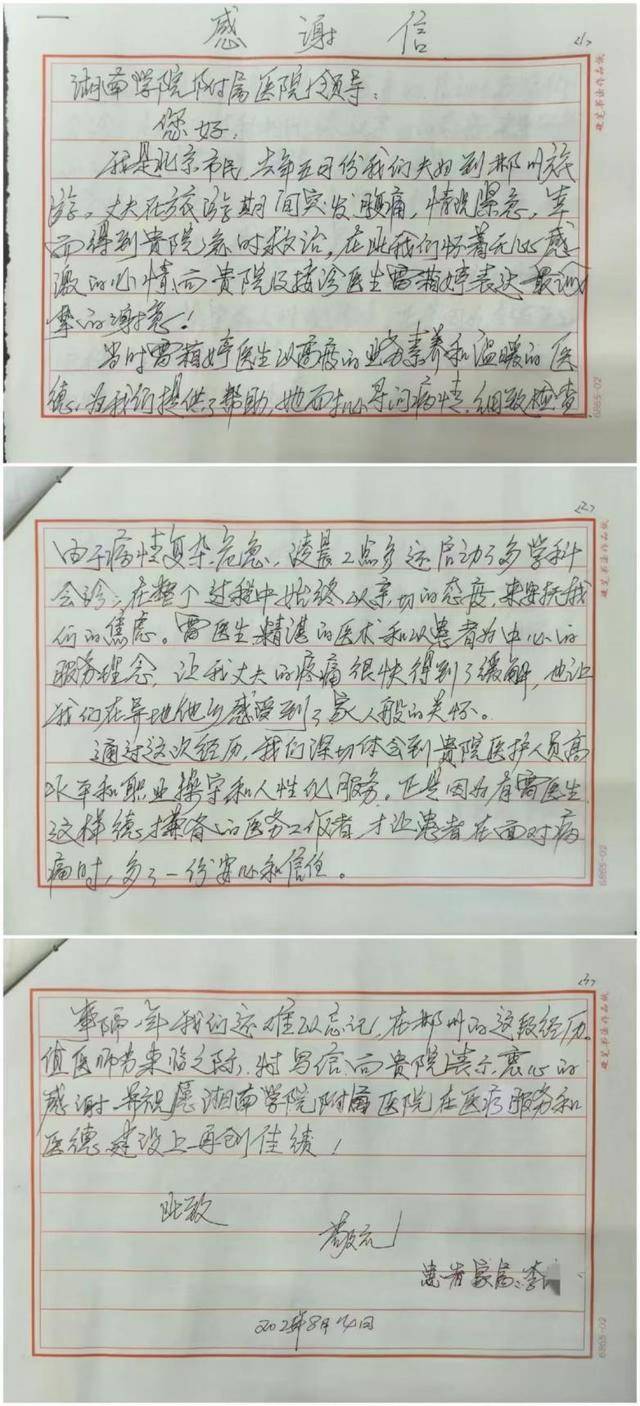 感谢信
<1>
湘南学院附属医院领导：
您好，
我是北京市民，去年五月份我们夫妇到郴州旅
游。丈夫在旅游期间突发腰痛，情况紧急，幸
而得到贵院急时救治，在此我们怀着无比感
激的心情向贵院及接诊医生雷箱婷表达最诚
挚的谢意！
当时雷箱婷医生以高度的业务素养和温暖的医
德，为我们提供了帮助，她耐心寻问病情，细致检查
硬笔书法作品纸
6865-02
<2>
由于病情复杂危急，凌晨2点多还启动了多学科
会诊；在整个过程中始终以亲切的态度，来安抚我
们的焦虑。雷医生精湛的医术和以患者为中心的
服务理念，让我丈夫的疼痛很快得到了缓解，也让
我们在异地他乡感受到了家人般的关怀。
通过这次经历，我们深切体会到贵院医护人员高
水平和职业操守和人性化服务。正是因为有雷医生
这样德才兼备的医务工作者，才让患者在面对病
痛时，多了一份安心和信任。
硬笔书法作品纸
6865-02
<3>
事隔一年我们还难以忘记，在郴州的这段经历。
值医师节来临之际，特写信向贵院表示衷心的
感谢，并祝愿湘南学院附属医院在医疗服务和
医德建设上再创佳绩！
此致
敬礼！
患者家属：李
8月
硬笔书法作品纸
6865-02